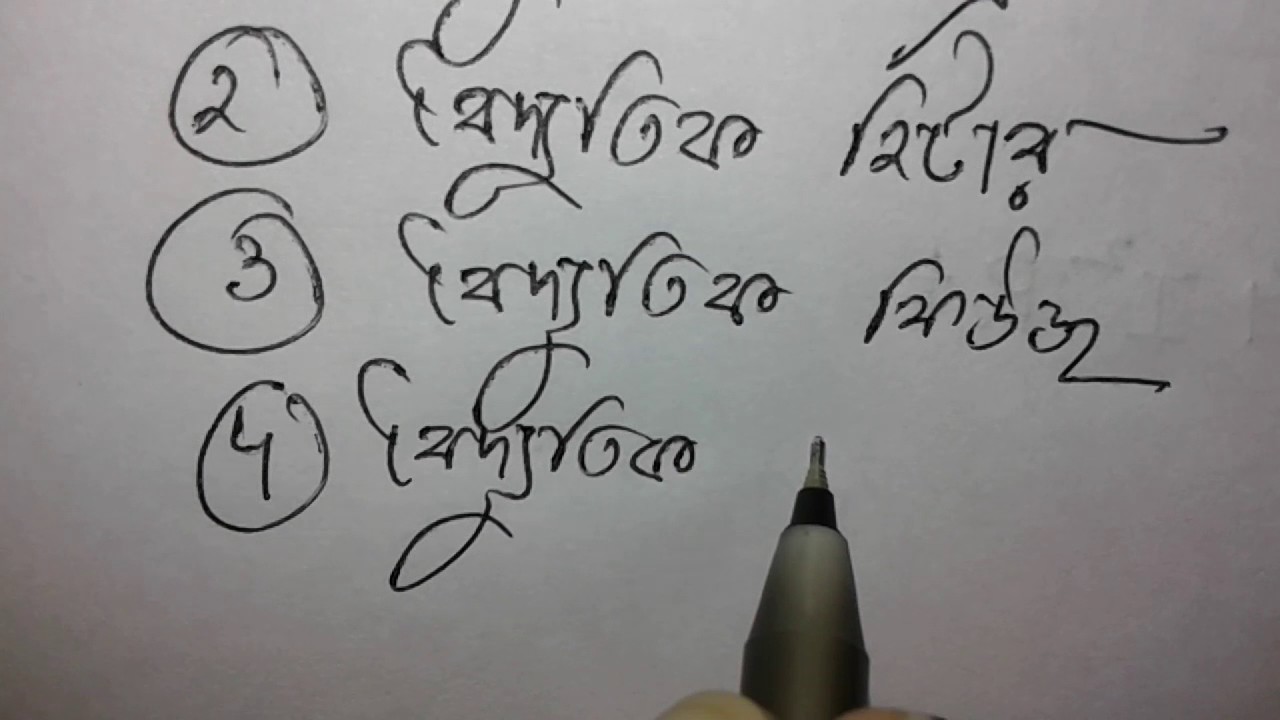 ২ বৈদ্যুতিক হিটার
৩ বৈদ্যুতিক ফিউজ
৪ বৈদ্যুতিক